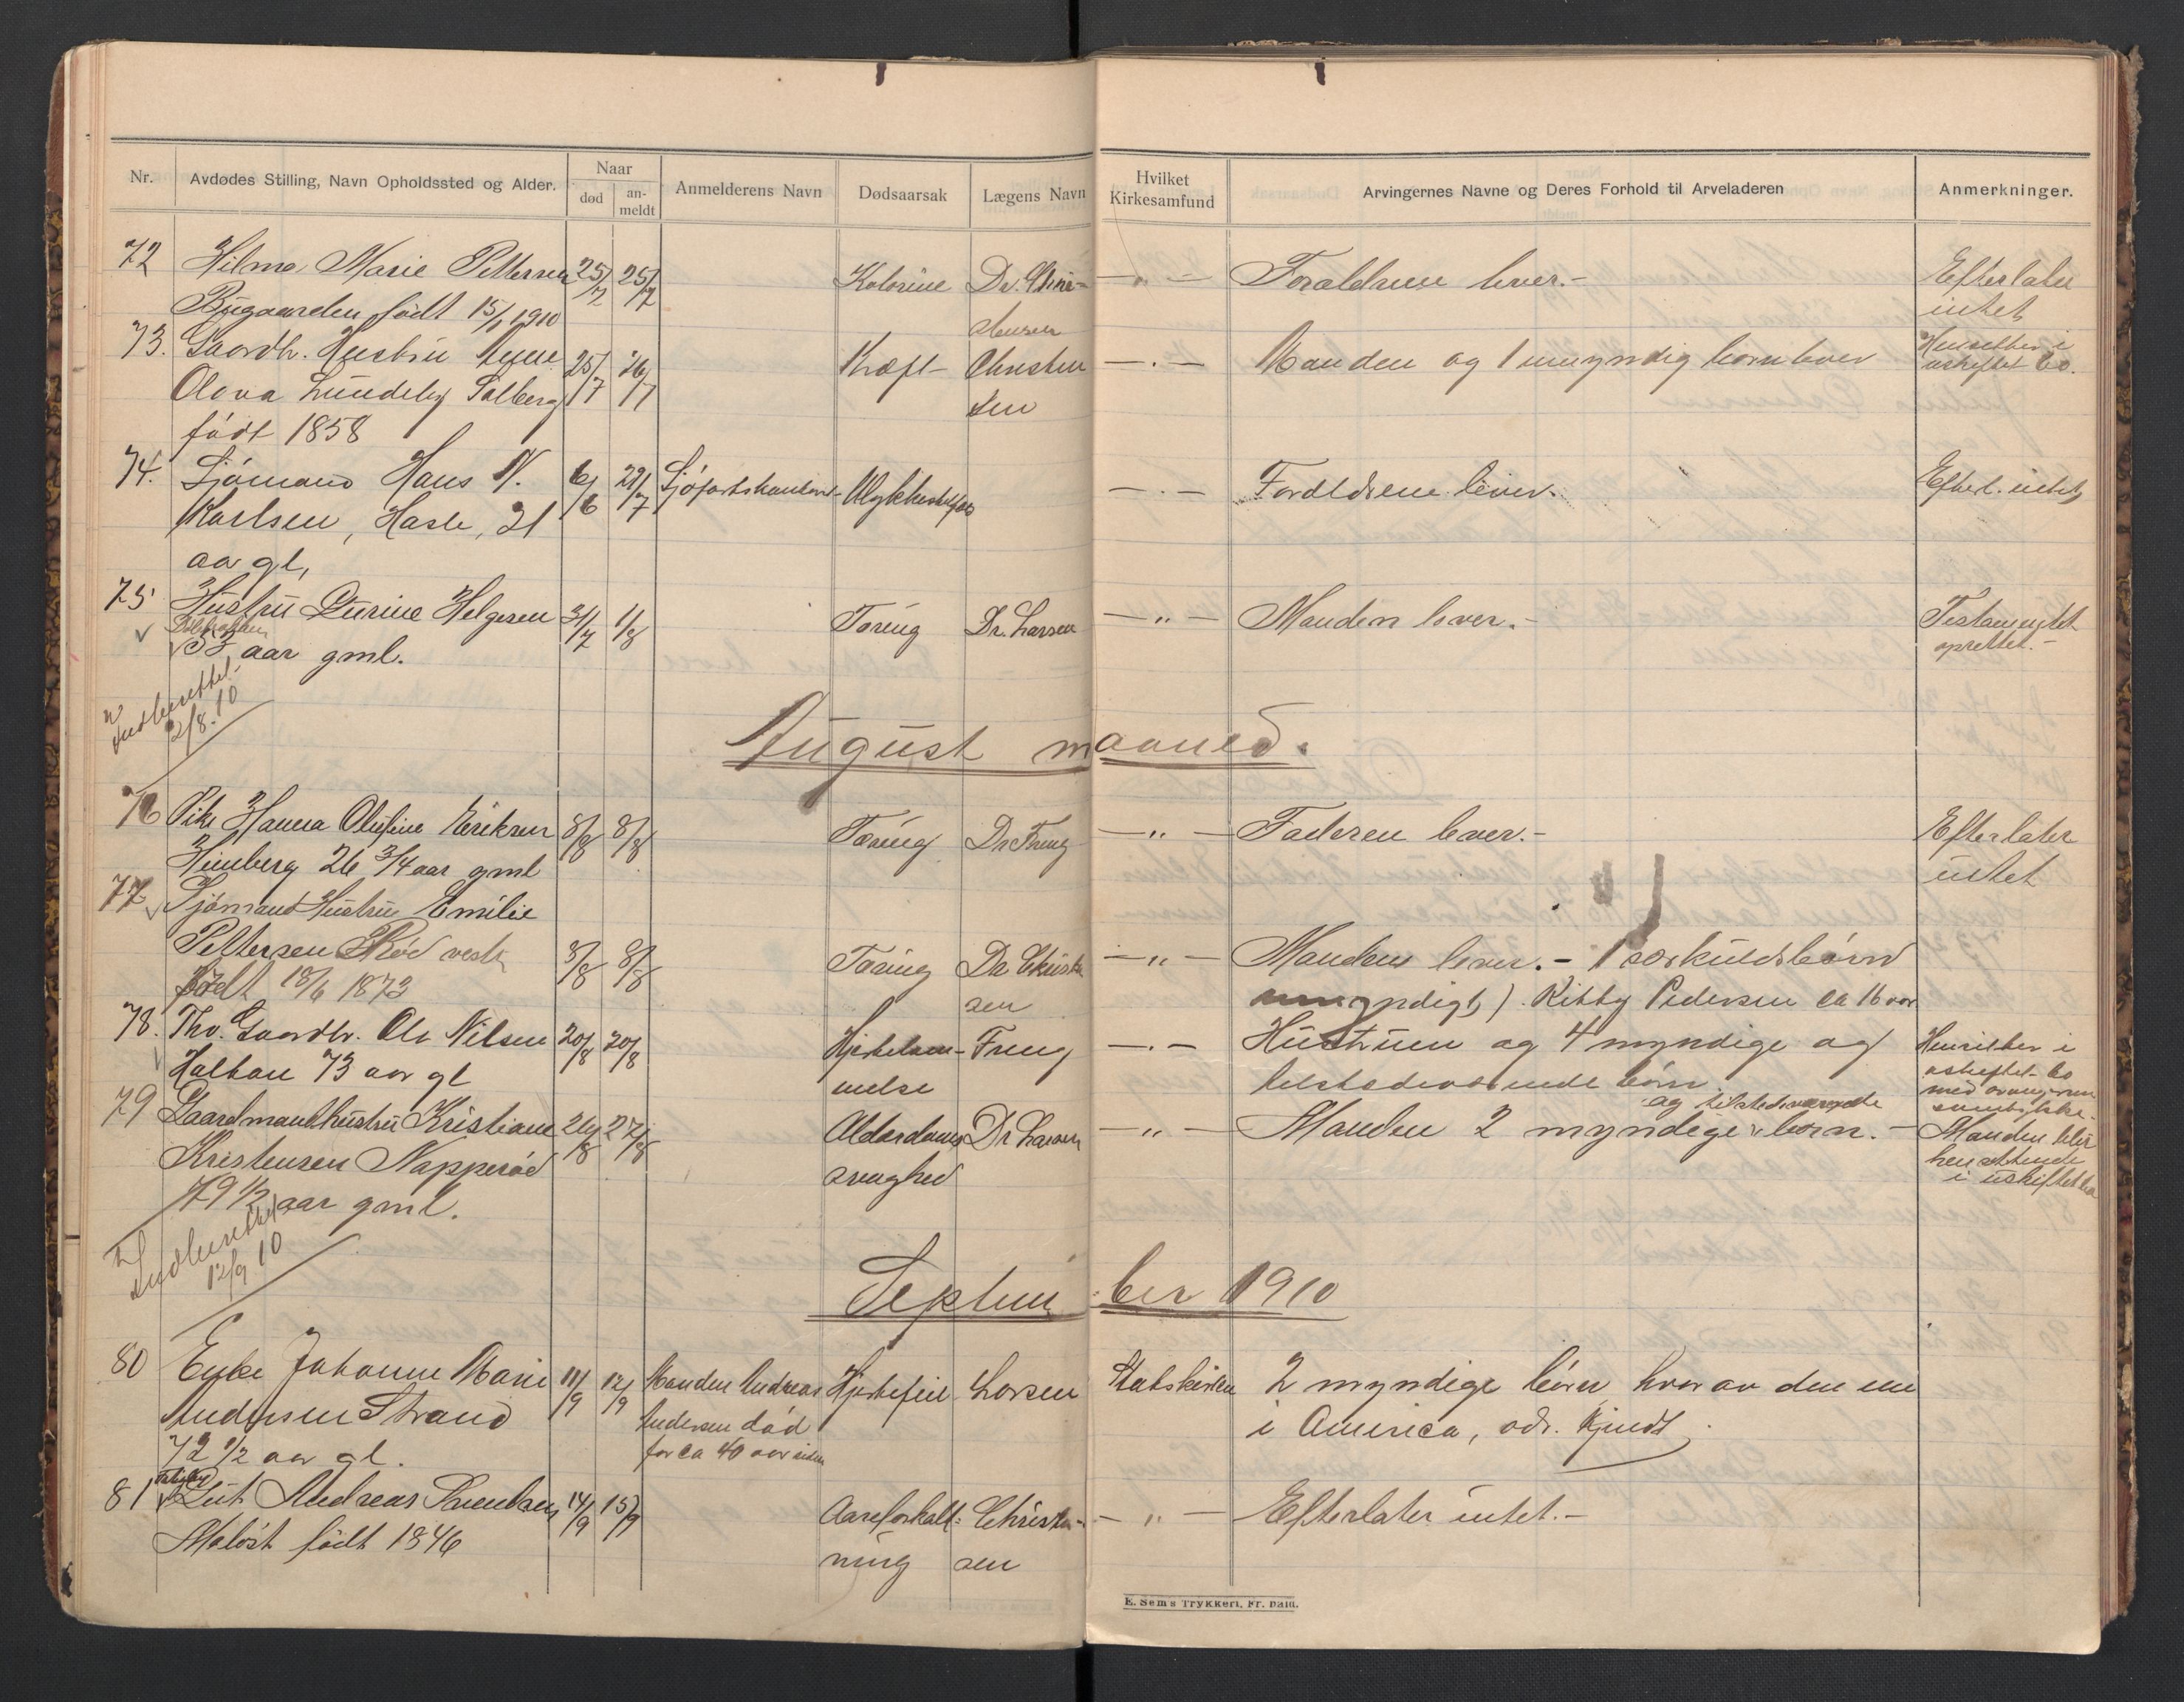 Nr.
Avdødes Stilling, Navn Opholdssted og Alder.
Naar
død
an-
meldt
Anmelderens Navn
Dødsaarsak
Lægens Navn
Hvilket
Kirkesamfund
Arvingernes Navne og Deres Forhold til Arveladeren
Anmerkninger.
72 Hilma Marie Pettersen 25/7 25/7 Kolerine Dr. Chri- — " — Forældrene lever.- Efterlater
født 15/1 1910 stensen intet
73. Gaardbr. Hustru 25/7 26/7 Kræft Christen — . — Manden og 1 umyndig barn lever Hensitter i
Olava Lundeby Solberg sen uskiftet bo.
født 1858
74. Sjömand Hans N. 6/6 22/7 Sjöfartskontoret Ulykkestilfæl — . — Forældrene lever. Efterl. intet
Karlsen, Hasle, 21
aar gl,
75 Hustru Helgesen 31/7 1/8 Tæring Dr. Larsen — " — Manden lever.- Testamentet
53 aar gml. oprettet.-
Indberettet
2/8.10
August maaned.
76 Pike Hanna Olufine Eriksen 8/8 8/8 Tæring Dr Treng — " — Faderen lever.- Efterlater
Himberg 26 3/4 aar gml intet
77 Sjömand Hustru Emilie
Pettersen Röd vestre 3/8 8/8 Tæring Dr Christen — " — Manden lever.- 1 særkuldsbörn
født 18/6 1873 sen umyndigt). Pedersen ca 16 aar
78. Fhv. Gaardbr. Ole Nilsen 20/8 20/8 Hjertelam- Treng — . — Hustruen og 4 myndige og Hensitter i
73 aar gl melse tilstedeværende börn uskiftet bo
med arvingernes
samtykke.
79 Gaardmandhustru Kristiane 26/8 27/8 Alderdoms Dr Larsen — " — Manden 2 myndige og tilstedeværende börn.- Manden blir
Kristensen Napperöd svaghed hensittende
79 1/2 aar gml. i uskiftet bo
Indberettet
12/9 10
September 1910
80 Enke Johanne Marie 11/9 12/9 Manden Andreas Hjertefeil Larsen Statskirken 2 myndige börn hvorav den ene
Andersen Strand Andersen död i America, adr. kjendt.
72 1/2 aar gl. for ca 40 aar siden
81 Andreas Svendsen 14/9 15/9 Aareforkalk- Christen- — " — Efterlater intet.-
født 1846 ning sen
E. Sem's Trykkeri, Fr. hald.